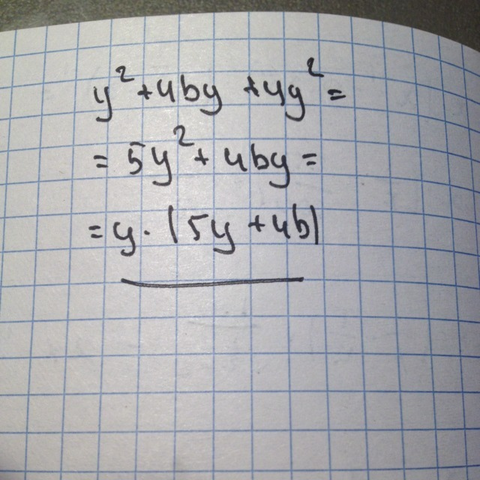 y²+4by+4y²=
=5y²+4by=
=y·(5y+4b)